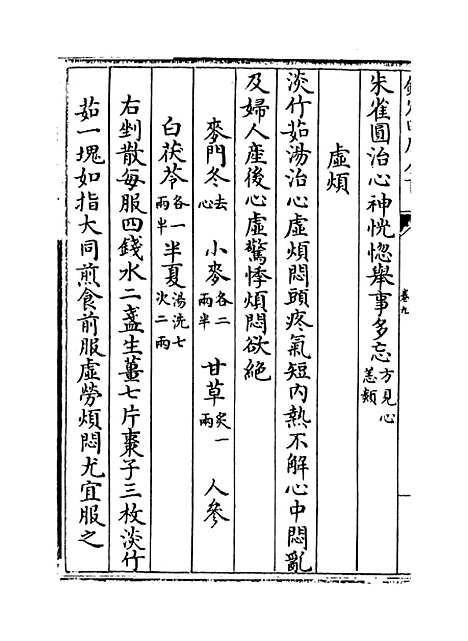 朱雀圓治心神恍惚舉事多忘方見心恙類
虛煩
淡竹茹湯治心虛煩悶頭疼氣短内熱不解心中悶亂
及婦人産後心虛驚悸煩悶欲絶
麥門冬去心 小麥各二兩半 甘草炙一兩 人參
白茯苓各一兩半 半夏湯洗七次二兩
右剉散每服四錢水二盞生薑七片棗子三枚淡竹
茹一塊如指大同煎食前服虛勞煩悶尤宜服之
卷九